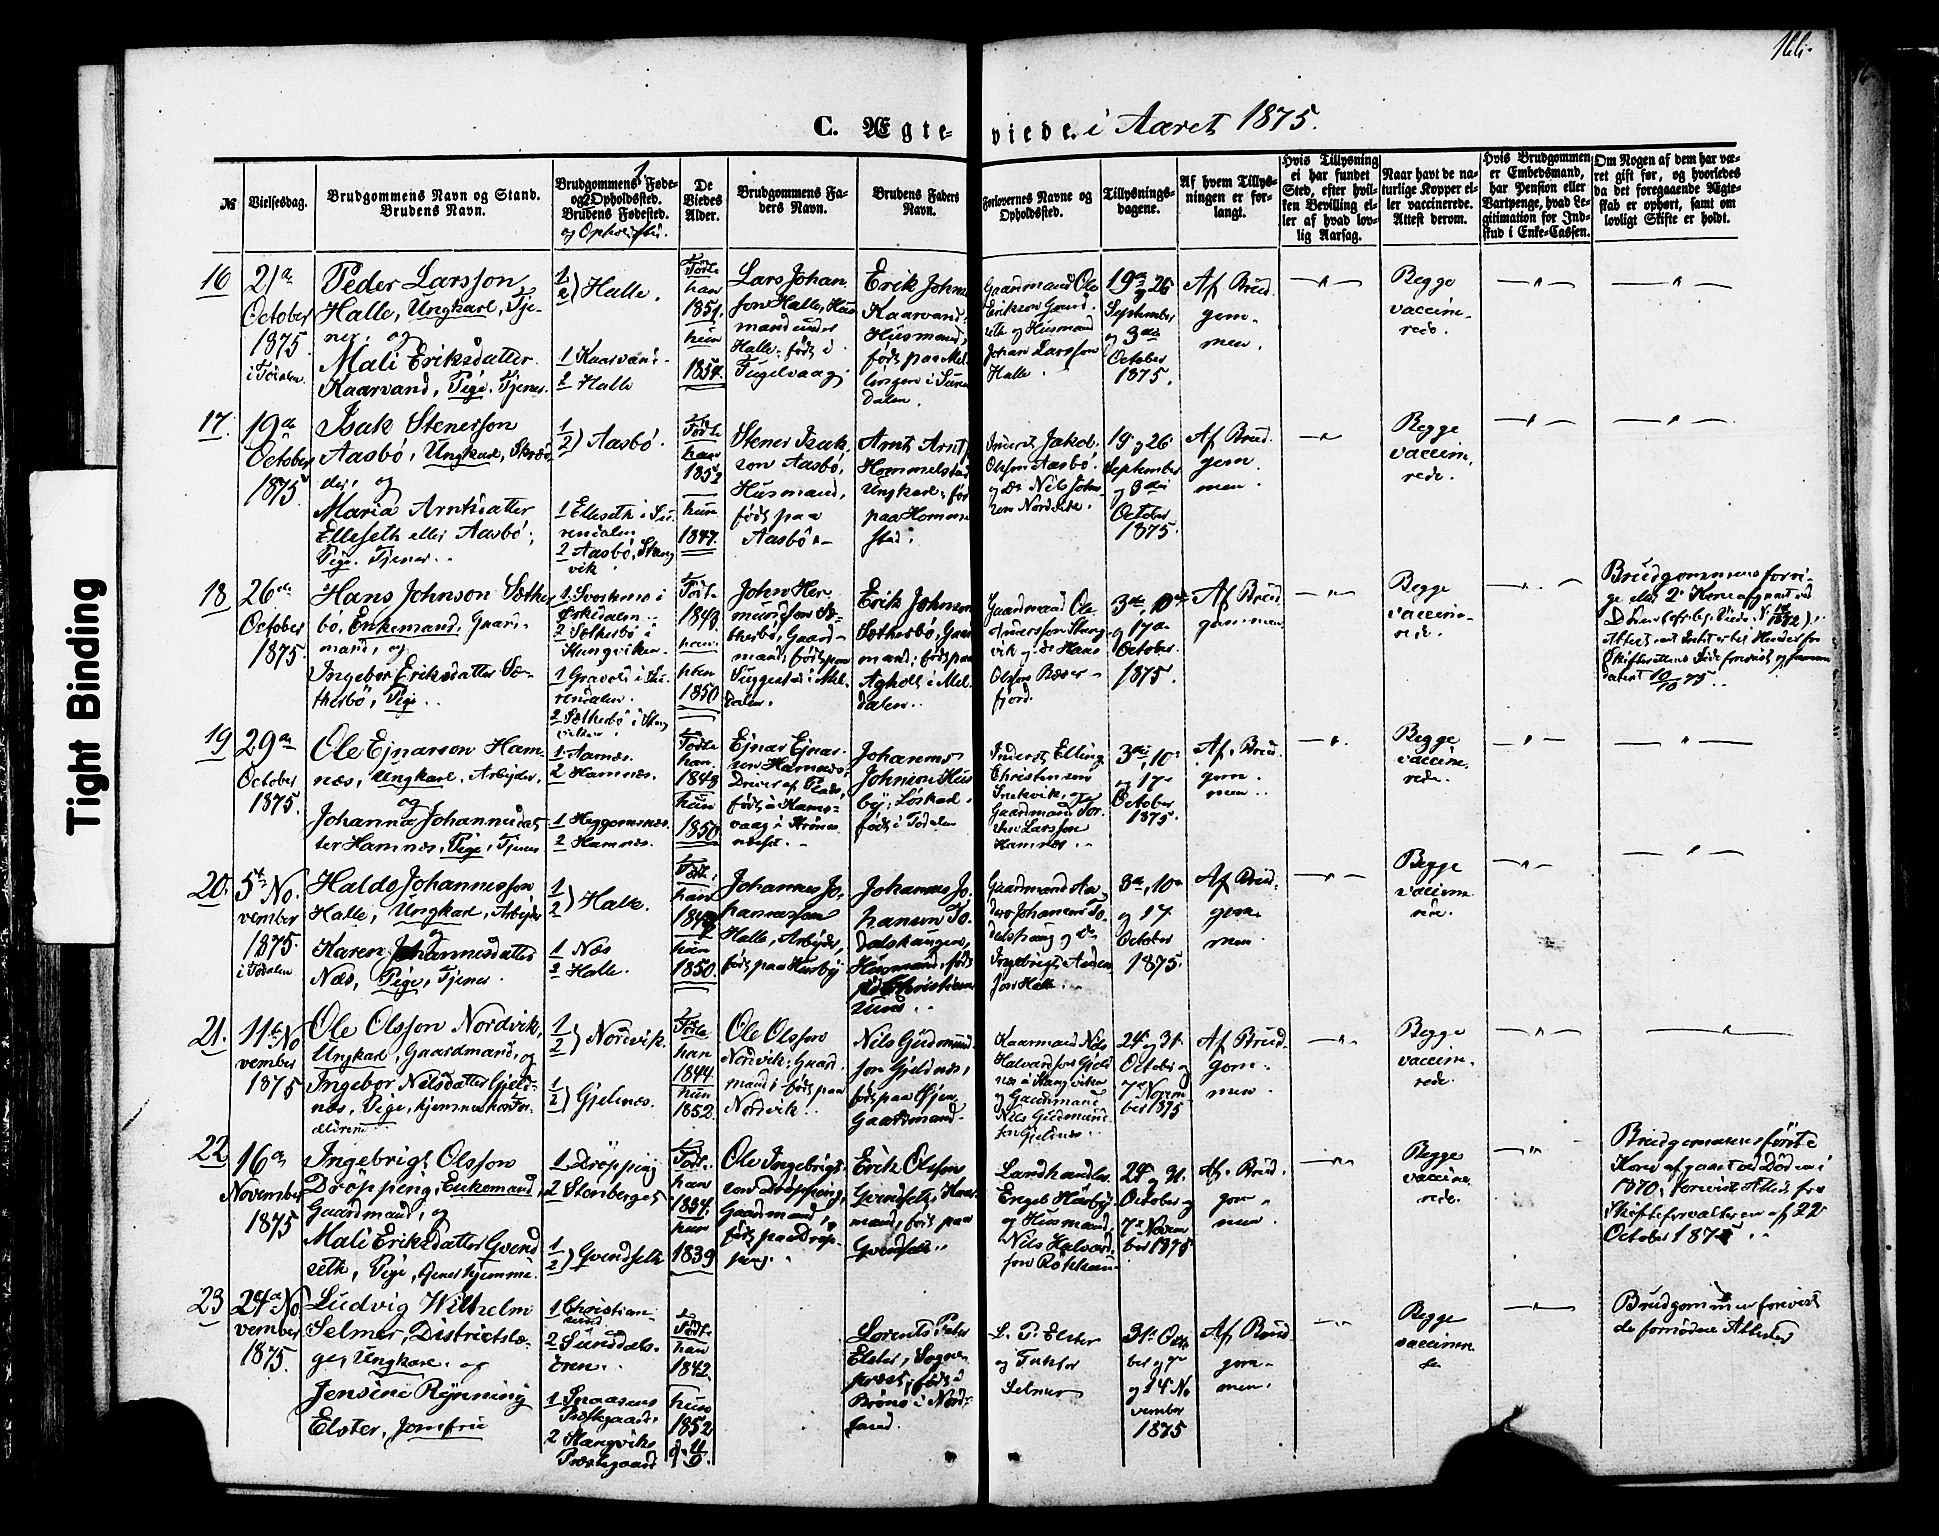 166.
C. Ægte-viede. i Aaret 1875.
№
Vielsesdag.
Brudgommens Navn og Stand.
Brudens Navn.
Brudgommens Føde-
og Opholdssted.
Brudens Fødested.
og Opholdssted.
De
Viedes
Alder.
Brudgommens Fa-
ders Navn.
Brudens Faders
Navn.
Forlovernes Navne og
Opholdssted.
Tillysnings-
dagene.
Af hvem Tillys-
ningen er for-
langt.
Hvis Tillysning
ei har fundet
Sted, efter hvil-
ken Bevilling el-
ler af hvad lov-
lig Aarsag.
Naar havt de na-
turlige Kopper el-
ler vaccinerede.
Attest derom.
Hvis Brudgommen
er Embedsmand,
har Pension eller
Vartpenge, hvad Le-
gitimation for Ind-
skud i Enke-Cassen.
Om Nogen af dem har væ-
ret gift før, og hvorledes
da det foregaaende Ægte-
skab er ophørt, samt om
lovligt Skifte er holdt.
16
21a
October
1875.
i Todalen
Peder Larsson
Halle, Ungkarl, Tje-
ner, og
Mali Eriksdatter
Kaarvand, Pige, Tjener.
1
2) Halle.
1 Kaarvand
2 Halle
Født
han
1851.
hun
1854.
Lars Johan
son Halle, Hus
mand under
Halle, født i
Fugelvaag
Erik Johns
Kaarvand,
Husmand,
født paa Mel-
lingen i Suren
dalen.
Gaardmand Ole
Erikson
og Husmand
Johan Larsson
Halle.
19a, 26
September
og 3die
October
1875.
Af Brud
gom-
men.
Begge
vaccine-
rede.
17.
19a
October
1875
Isak Stenerson
Aasbö, Ungkarl, Skræd-
der, og
Maria Arntsdatter
Elleseth eller Aasbö,
Pige, Tjener.
1
2) Aasbö.
1 Elleseth i Su-
rendalen
2 Aasbö, Stang
vik.
Født
han
1852
hun
1847.
Stener Isak-
son Aasbö,
Husmand,
født paa
Aasbö
Arnt Arnt
Hommelstad
Ungkarl, før
paa Homme
stad.
Inderst Jakob
Olsson Aasbö
og Do Nils John
sen Nordvik.
19. og 26
September
og 3die
October
1875.
Af Brud
gom-
men.
Begge
vaccine-
rede.
18
26de
October
1875.
Hans Johnson Sæther
bö, Enkemand, Gaard
mand, og
Ingebor Eriksdatter Sæ-
therbö, Pige.
1 Svorkmo i
Orkedalen
2 Sætherbö i
Stangviken
1 Gravoli i Su-
rendalen.
2 Sætherbö i Stang
viken.
Født
1848
han.
hun
1850
John Her
mundson Sæ-
therbö, Gaard-
mand, født paa
Suggestad i Mel
dalen.
Erik Johnson
Sætherbö, Gaar
mand, født paa
Agholt i Mel-
dalen.
Gaardmand Ole
Andersson Stang
vik og do Hans
Olsson Bæver-
fjord.
3die, 10de
og 17de
October
1875.
Af Brud
gommen
Begge
vaccine-
rede.
Brudgommens forri-
ge eller 2den Kone afgaaet ved
Döden
Skifterettens
dateret 10/10 75.
19
29a
October
1875.
Ole Ejnarson Ham-
næs, Ungkarl, Arbejder,
og
Johanna Johannesdat
ter Hamnæs, Pige, Tjener
1 Aarnæs.
2 Hamnæs.
1 Heggemsnæs.
2 Hamnæs.
Født
han.
1848
hun
1850.
Ejnar Ejnar-
son Hamnæs,
Driver af Plads,
født i Hams-
vaag i Kröner
næset.
Johannes
Johnson Hus
by, Löskarl,
født i Todalen
Inderst Elling
Christensen
Snekvik, og
Gaardmand Tor-
sten Larsson
Hamnæs.
3die, 10
og 17
October
1875.
Af Brud
gom-
men.
Begge
vaccine-
rede.
20.
5te No
vember
1875.
i Todalen
Haldo Johannesson
Halle, Ungkarl, Arbejder
og
Karen Johannesdatter
Næs, Pige, Tjener.
1
2) Halle.
1 Næs
2 Halle.
Født
han
184
hun
1850.
Johannes Jo-
hannesson
Halle, Arbejder,
født paa Husby
Johannes Jo-
hanson To-
dalshaugen,
Husmand, født
paa Christian
sund.
Gaardmand
Johansen To-
dalshaug og do
Ingebrigt
son Halle.
3a, 10a
og 17
October
1875.
Af Brud-
gom-
men.
Begge
vaccine
rede.
21.
11te No
vember
1875
Ole Olsson Nordvik,
Ungkarl, Gaardmand, og
Ingebor Nilsdatter Gjeld-
næs, Pige, hjemme hos For-
ældrene
1
2) Nordvik.
1
2) Gjelnæs.
Født
han
1844
hun
1852.
Ole Olsson
Nordvik, Gaard
mand, født paa
Nordvik.
Nils Gudmund
son Gjeldnæs,
født paa Øjen
Gaardmand.
Kaarmand Nils
Halvardson Gjeld
næs i Stangviken
og Gaardmand
Nils Gudmund
son Gjeldnæs.
24. og 31.
October og
7a Novem-
ber 1875
Af Brud
gom-
men
Begge
vaccine-
rede.
22
16a
November
1875
Ingebrigt Olsson
Dröpping, Enkemand,
Gaardmand, og
Mali Eriksdatter Gvend
seth, Pige, tjener hjemme.
1 Dröpping
2 Stenberget
1
2) Gvendseth
Født
han
1837.
hun
1839
Ole Ingebrigt-
son Dröpping,
Gaardmand,
født paa Dröp-
ping.
Erik Olsson
Gvendseth, Hus
mand, født paa
Gvendseth.
Landhandler
Engels Husby
og Husmand
Nils Halvard
son Röthaug
24. og 31.
October og
7a Novem
ber 1875
Af Brud
gom-
men.
Begge
vaccine
rede.
Brudgommens förste
Kone afgaaet ved Döden i
1870, forevist Attest fra
Skifteforvalteren af 22
October 1875.
23
24a No
vember
1875.
Ludvig Wilhelm
Selmer, Districtslæ-
ge, Ungkarl, og
Jensine Rynning
Elster, Jomfru
1 Christian-
sund
2 Sunddals-
ören.
1 Snaasens
Præstegaard.
2 Stangviks
Præstegaard
Født
han
1842.
hun
1852
Lorents Peter
Elster, Sogne-
præst, født i
Brönö i Nord-
land.
L. P. Elster
og
Selmer
31. Octo
ber og 7a
og 14 No
vember
1875
Af Brud
gom-
men.
Begge
vaccinere
de
Brudgommen forevist
de fornödne Attester
Tight Binding